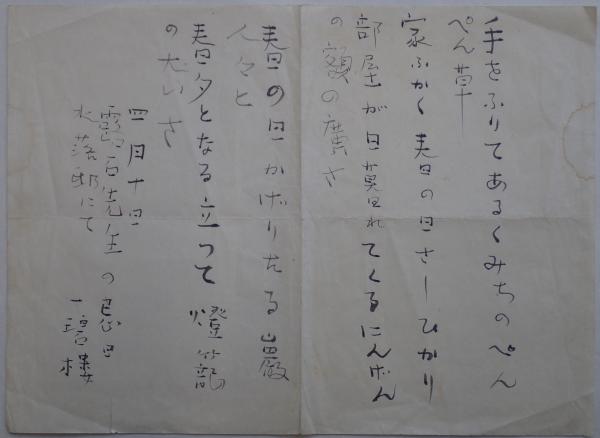 手をふりてあるくみちのぺん
ぺん草
家ふかく春の日さしひかり
部屋が日暮れてくるにんげん
の額の廣さ
春の日かげりたる巖
人々と
春夕となる立つて燈籠
の大いさ
四月十日
露石先生の忌日
水落邸にて
一碧樓